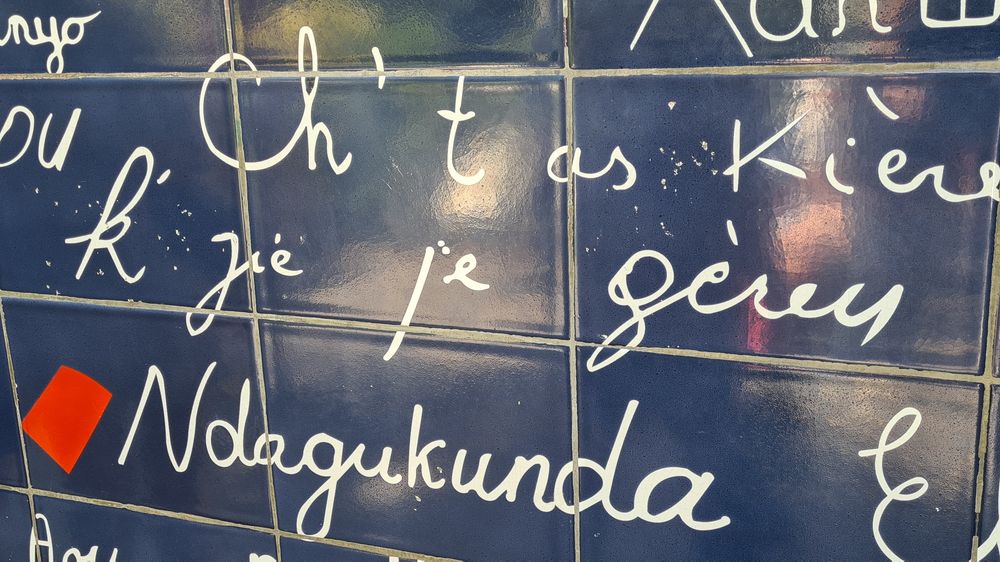 nyo
ou Ch't as Kière
k'jié je gèrey
Ndagukunda